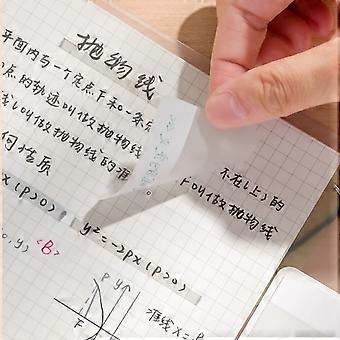 抛物线
平面内与一个定点F和一条定
点的轨迹叫做抛物线
不在l上)的
线l叫做抛物线的准
F叫做抛物线
何性质
px(p>0)
y²=-2px(p>0)
0,y)
<B>
P
y
F
准线x=